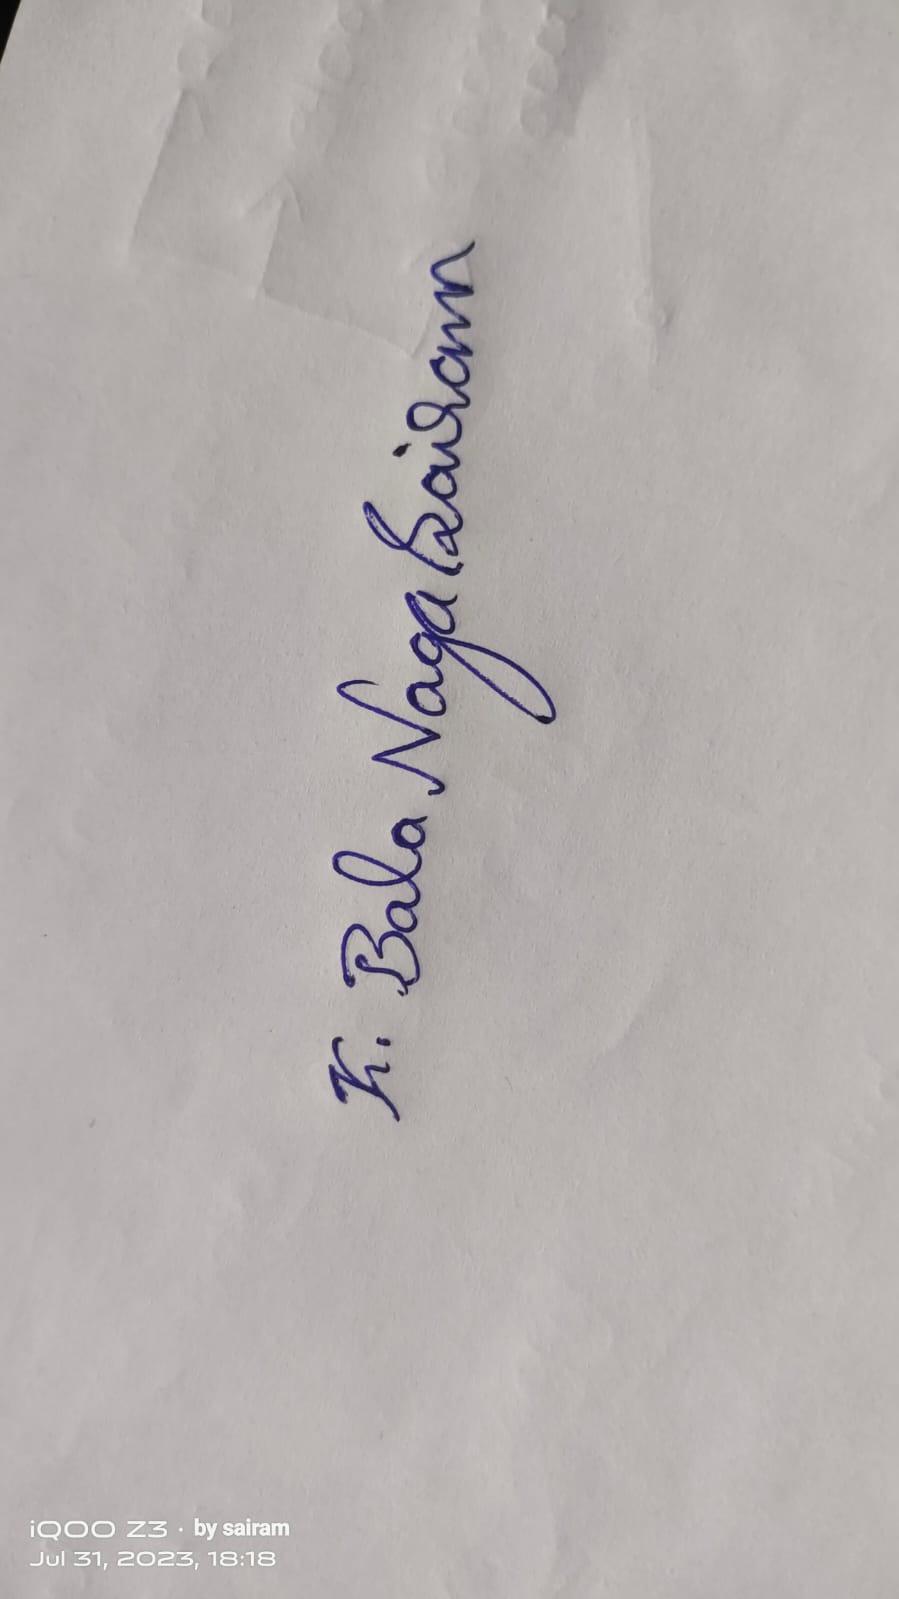 K. Bala Naga Sairam
iQOO Z3 · by sairam
Jul 31, 2023, 18:18